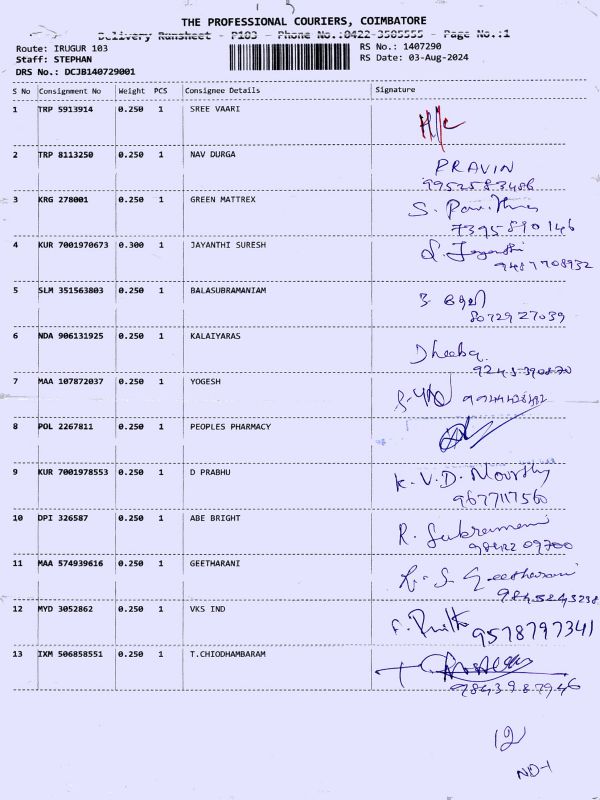 THE PROFESSIONAL COURIERS, COIMBATORE
Delivery Runsheet - P103 - Phone No.:0422-3505555 - Page No.:1
Route: IRUGUR 103
RS No.: 1407290
Staff: STEPHAN
RS Date: 03-Aug-2024
DRS No.: DCJB140729001
S No Consignment No Weight PCS Consignee Details Signature
1 TRP 5913914 0.250 1 SREE VAARI
2 TRP 8113250 0.250 1 NAV DURGA PRAVIN
9952583486
3 KRG 278001 0.250 1 GREEN MATTREX S.
7395890146
4 KUR 7001970673 0.300 1 JAYANTHI SURESH
9487708932
5 SLM 351563803 0.250 1 BALASUBRAMANIAM
8072927039
6 NDA 906131925 0.250 1 KALAIYARAS Dheeba
7 MAA 107872037 0.250 1 YOGESH
8 POL 2267811 0.250 1 PEOPLES PHARMACY
9 KUR 7001978553 0.250 1 D PRABHU K.V.D. Moorthy
9677117560
10 DPI 326587 0.250 1 ABE BRIGHT R. Subramani
98422 09700
11 MAA 574939616 0.250 1 GEETHARANI
9845243238
12 MYD 3052862 0.250 1 VKS IND
9578797341
13 IXM 506858551 0.250 1 T.CHIODHAMBARAM
9843987946
12
ND-1